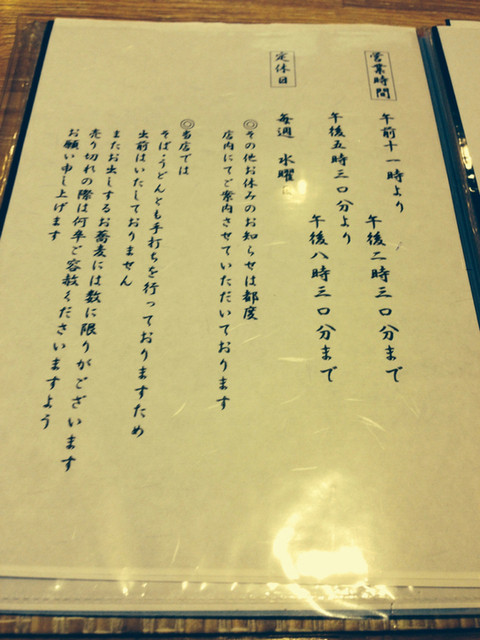 営業時間
午前十一時より
午後二時三〇分まで
午後五時三〇分より
午後八時三〇分まで
定休日
毎週 水曜
◎その他お休みのお知らせは都度
店内にてご案内させていただいております
◎当店では
そば・うどんとも手打ちを行っておりますため
出前はいたしておりません
またお出しするお蕎麦には数に限りがございます
売り切れの際は何卒ご容赦くださいますよう
お願い申し上げます